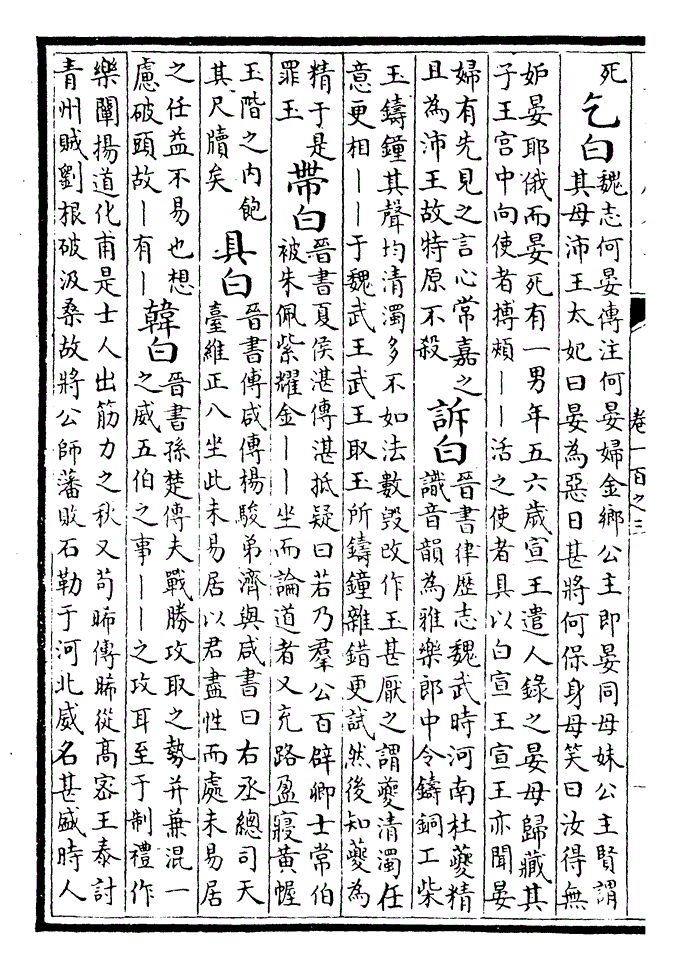 卷一百之三
死
乞白
魏志何晏傳注何晏婦金鄉公主即晏同母妹公主賢謂
其母沛王太妃曰晏為惡日甚將何保身母笑曰汝得無
妒晏耶俄而晏死有一男年五六歲宣王遣人錄之晏母歸藏其
子王宮中向使者搏頰丨丨活之使者具以白宣王宣王亦聞晏
婦有先見之言心常嘉之
且為沛王故特原不殺
訴白
晉書律歷志魏武時河南杜夔精
識音韻為雅樂郎中令鑄銅工柴
玉鑄鐘其聲均清濁多不如法數毀改作玉甚厭之謂夔清濁任
意更相丨丨于魏武王武王取玉所鑄鐘雜錯更試然後知夔為
精于是
罪玉
帶白
晉書夏侯湛傳湛抵疑曰若乃羣公百辟卿士常伯
被朱佩紫耀金丨丨坐而論道者又充路盈寢黃幄
玉階之内飽
其尺牘矣
具白
晉書傅咸傳楊駿弟濟與咸書曰右丞總司天
臺維正八坐此未易居以君盡性而處未易居
之任益不易也想
慮破頭故丨有丨
韓白
晉書孫楚傳夫戰勝攻取之勢并兼混一
之威五伯之事丨丨之攻耳至于制禮作
樂闡揚道化甫是士人出筋力之秋又苟晞傳晞從高密王泰討
青州賊劉根破汲桑故將公師藩敗石勒于河北威名甚盛時人